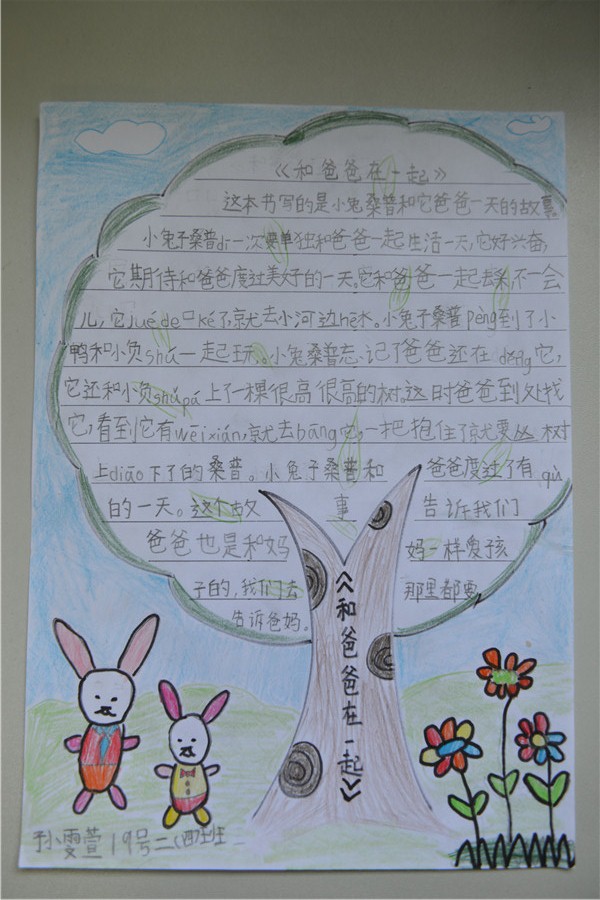 《和爸爸在一起》
这本书写的是小兔桑普和它爸爸一天的故事
小兔子桑普dì一次要单独和爸爸一起生活一天,它好兴奋,
它期待和爸爸度过美好的一天。它和爸爸一起去 不一会
儿,它jué de 口 ké了,就去小河边hē水。小兔子桑普pèng到了小
鸭和小负shǔ一起玩。小兔桑普忘记了爸爸还在děng它,
它还和小负shǔ pá上了一棵很高很高的树。这时爸爸到处找
它,看到它有wēi xián,就去bāng它,一把抱住了就要从树
上diāo下了的桑普。小兔子桑普和爸爸度过了有qù
的一天。这个故事告诉我们
爸爸也是和妈妈一样爱孩
子的,我们去那里都要
告诉爸妈。
《和爸爸在一起》
孙雯萱19号二(四)班